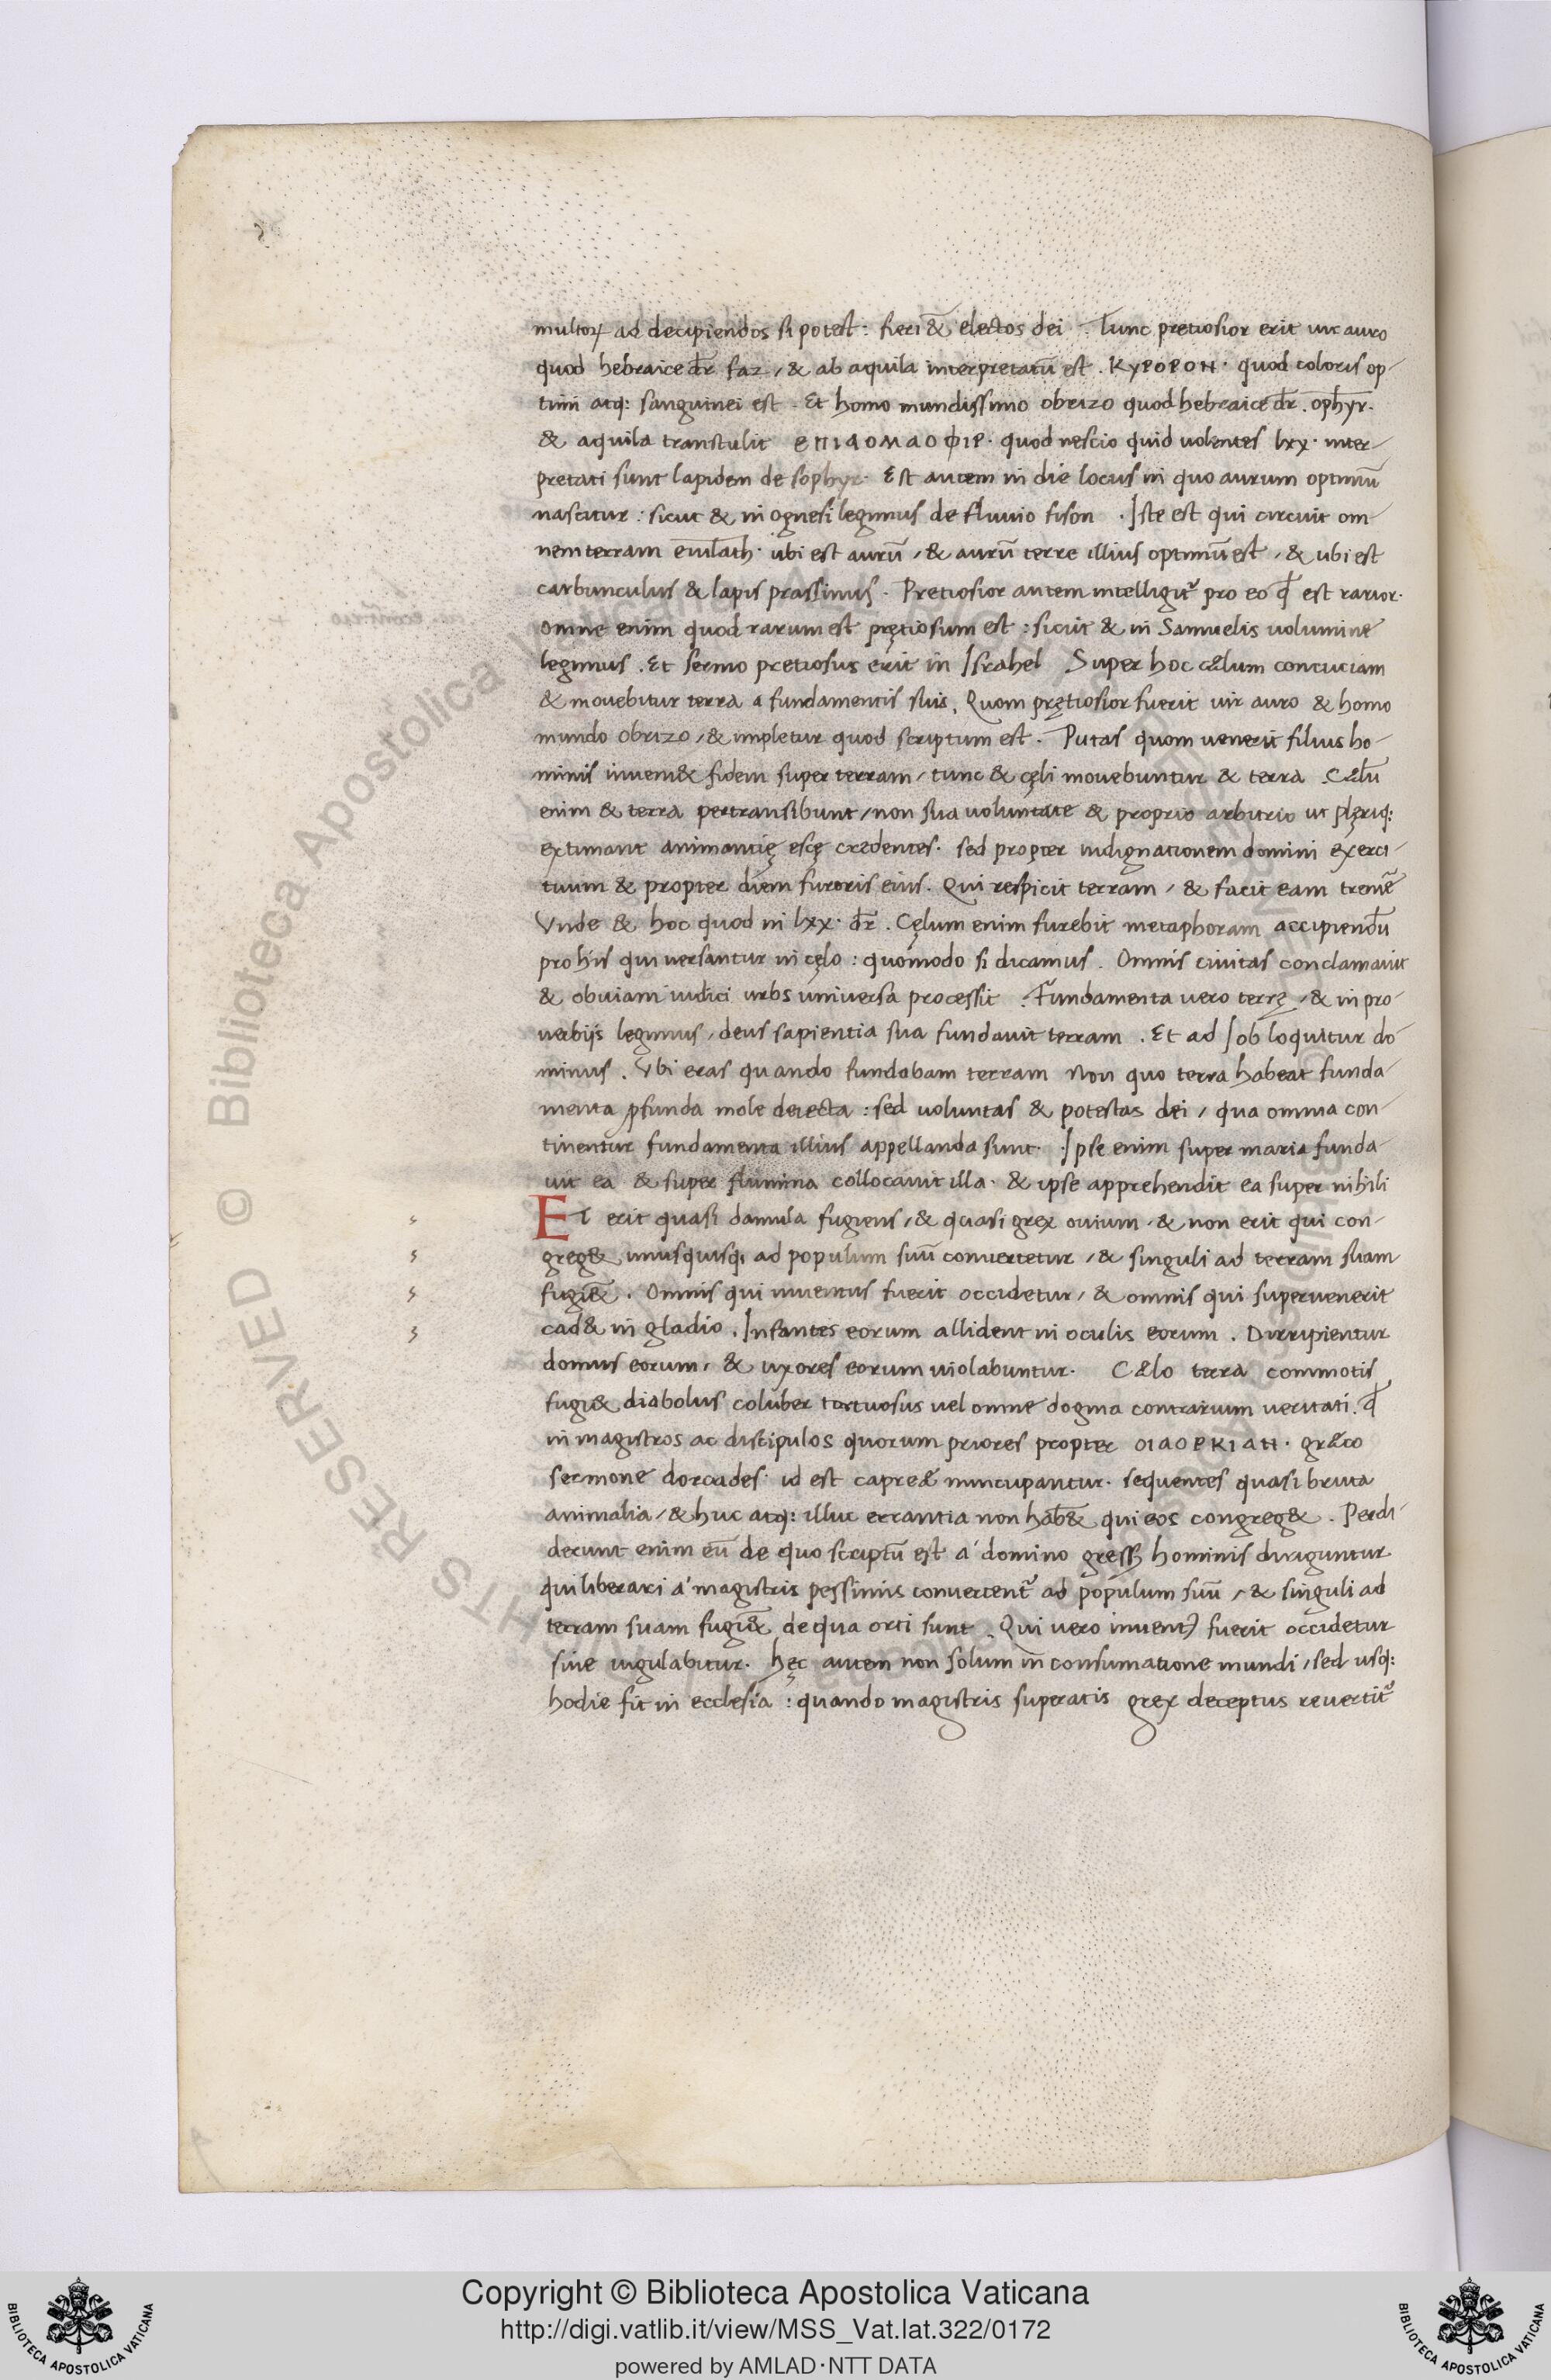 multoꝝ ad decipiendos si potest : fieri &̄ electos dei . Tunc pretiosior erit uir auro
quod hebraice dr̄ faz , & ab aquila interpretatū est . ΚγΡΟΡΟΝ · quod coloris op-
timi atq: sanguinei est . Et homo mundissimo obrizo quod hebraice dr̄ . ophyr.
& aquila transtulit · quod nescio quid uolentes lxx · inter-
pretati sunt lapidem de sophyr · Est autem in die locus in quo aurum optimū
nascitur : sicut & in ognesi legimus de fluuio fison . Iste est qui circuit om-
nem terram euilath · ubi est aurū , & aurū terre illius optimū est , & ubi est
carbunculus & lapis prassinus . Pretiosior autem intelligit᷑ pro eo qđ est rarior.
omne enim quod rarum est pręciosum est : sicut & in Samuelis uolumine
legimus . Et sermo pretiosus erit in Israhel Super hoc cælum concuciam
& mouebitur terra a fundamentis suis . Quom pręciosior fuerit uir auro & homo
mundo obrizo , & impletur quod scriptum est . Putas quom uenerit filius ho-
minis inueni& fidem super terram , tunc & cęli mouebuntur & terra . Cælū
enim & terra pertransibunt , non sua uoluntate & proprio arbitrio ut plęriq:
extimant animantię escę credentes . sed propter indignationem domini exerci-
tuum & propter diem furoris eius . Qui respicit terram , & facit eam tremē
Vnde & hoc quod in lxx · dr̄ . Cęlum enim furebit metaphoram accipiendū
pro hiis qui uersantur in cęlo : quomodo si dicamus . Omnis ciuitas conclamauit
& obuiam iudici urbs uniuersa processit . Fundamenta uero terrę , & in pro-
uerbijs legimus , deus sapientia sua fundauit terram . Et ad Iob loquitur do-
minus . Vbi eras quando fundabam terram Non quo terra habeat funda-
menta ꝓfunda mole deiecta : sed uoluntas & potestas dei , qua omnia con-
tinentur fundamenta illius appellanda sunt . Ipse enim super maria funda-
uit ea & super flumina collocauit illa · & ipse apprehendit ea super nihili
ET erit quasi damula fugiens , & quasi grex ouium , & non erit qui con-
greg& unusquisq; ad populum suū conuertetur , & singuli ad terram suam
fugiē& . Omnis qui inuentus fuerit occidetur , & omnis qui superuenerit
cad& in gladio . Infantes eorum allident in oculis eorum . Dirripientur
domus eorum , & uxores eorum uiolabuntur . Cælo terra commotis
fugi& diabolus coluber tortuosus uel omne dogma contrarium ueritati . qđ
in magistros ac discipulos quorum priores propter ΟΙΑΟΡΚΙΑΝ · græco
sermone dorcades · id est capreæ nuncupantur . sequentes quasi bruta
animalia , & huc atq: illuc errantia non hab& qui eos congreg& . Perdi-
derunt enim eū de quo scriptū est a' domino gressꝫ hominis diriguntur
qui liberari a' magistris pessimis conuertent᷑ ad populum suū , & singuli ad
terram suam fugi& de qua orti sunt . Qui uero inuentꝰ fuerit occidetur
siue iugulabitur . hęc autem non solum in consumatione mundi , sed usq:
hodie fit in ecclesia : quando magistris superatis grex deceptus reuertit᷑
Copyright © Biblioteca Apostolica Vaticana
http://digi.vatlib.it/view/MSS_Vat.lat.322/0172
powered by AMLAD·NTT DATA